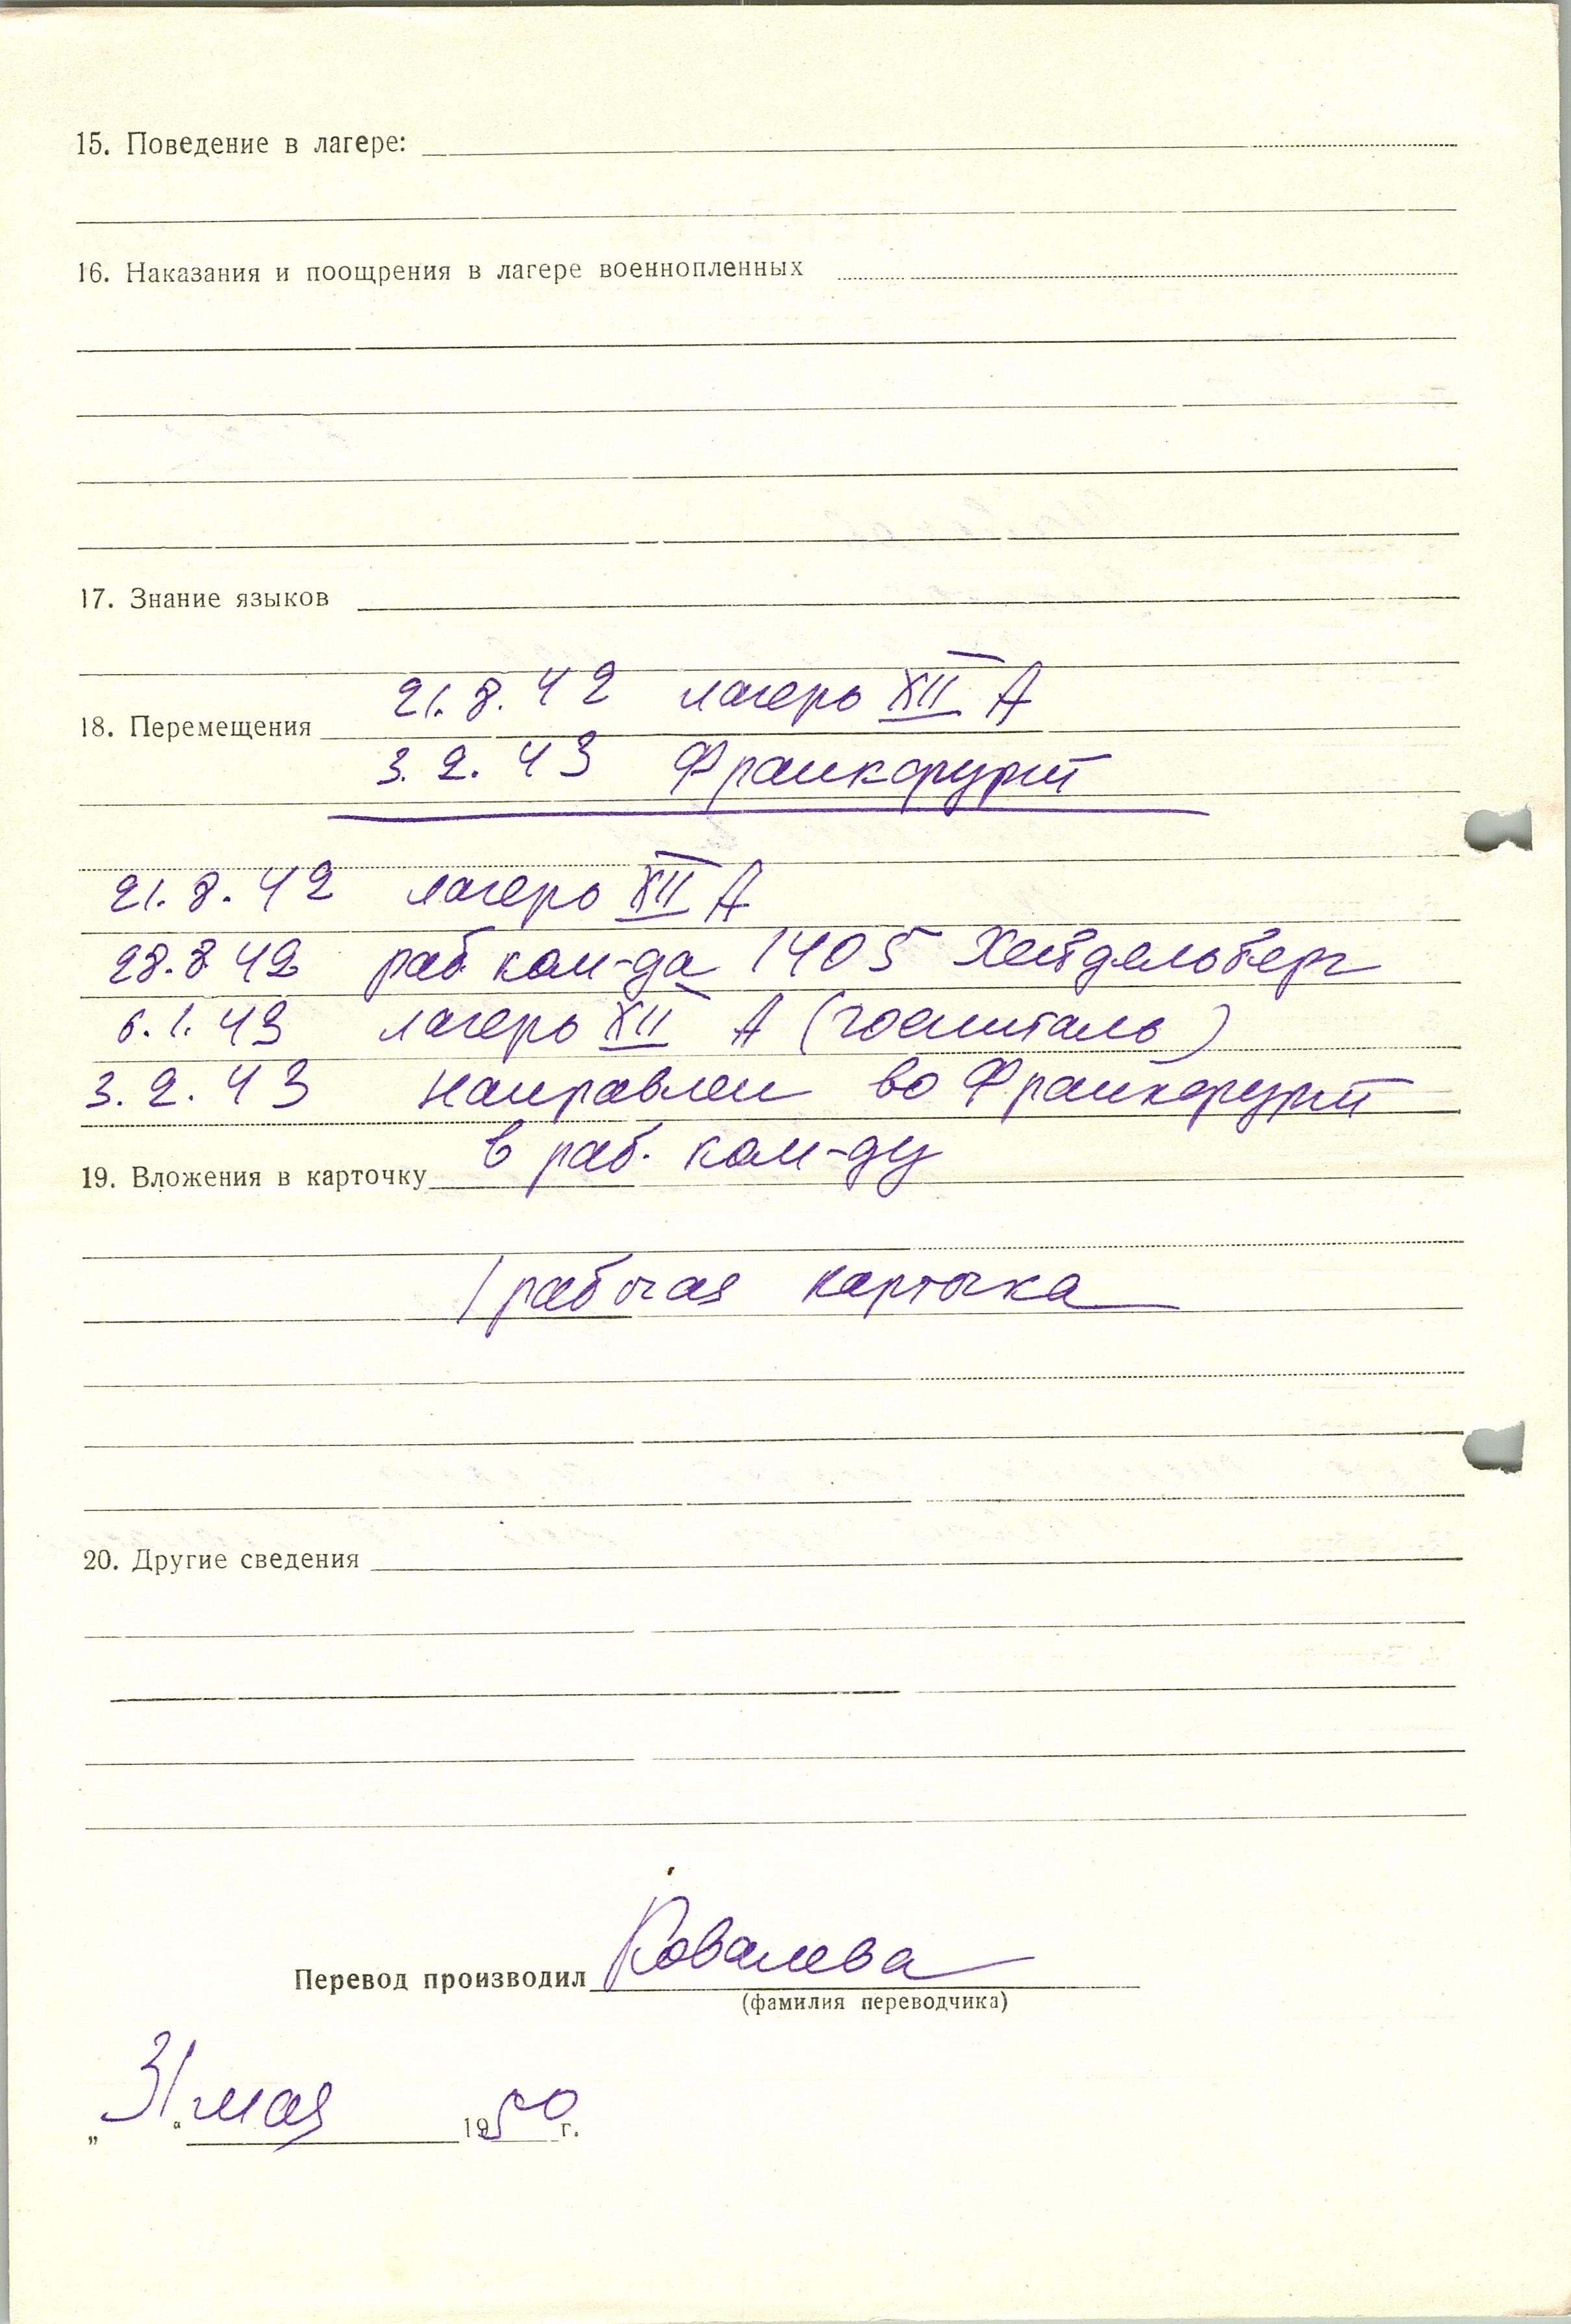 15. Поведение в лагере:
16. Наказания и поощрения в лагере военнопленных
17. Знание языков
21.8.42 лагерь XII А
18. Перемещения
3.2.43 Франкфурт
21.8.42 лагерь XII А
28.8.42 раб. ком-да 1405 Хейдельберг
6.1.43 лагерь XII А (госпиталь)
3.2.43 направлен во Франкфурт
в раб. ком-ду
19. Вложения в карточку
1 рабочая карточка
20. Другие сведения
Перевод производил Ковалева
(фамилия переводчика)
„31“ мая 1950 г.